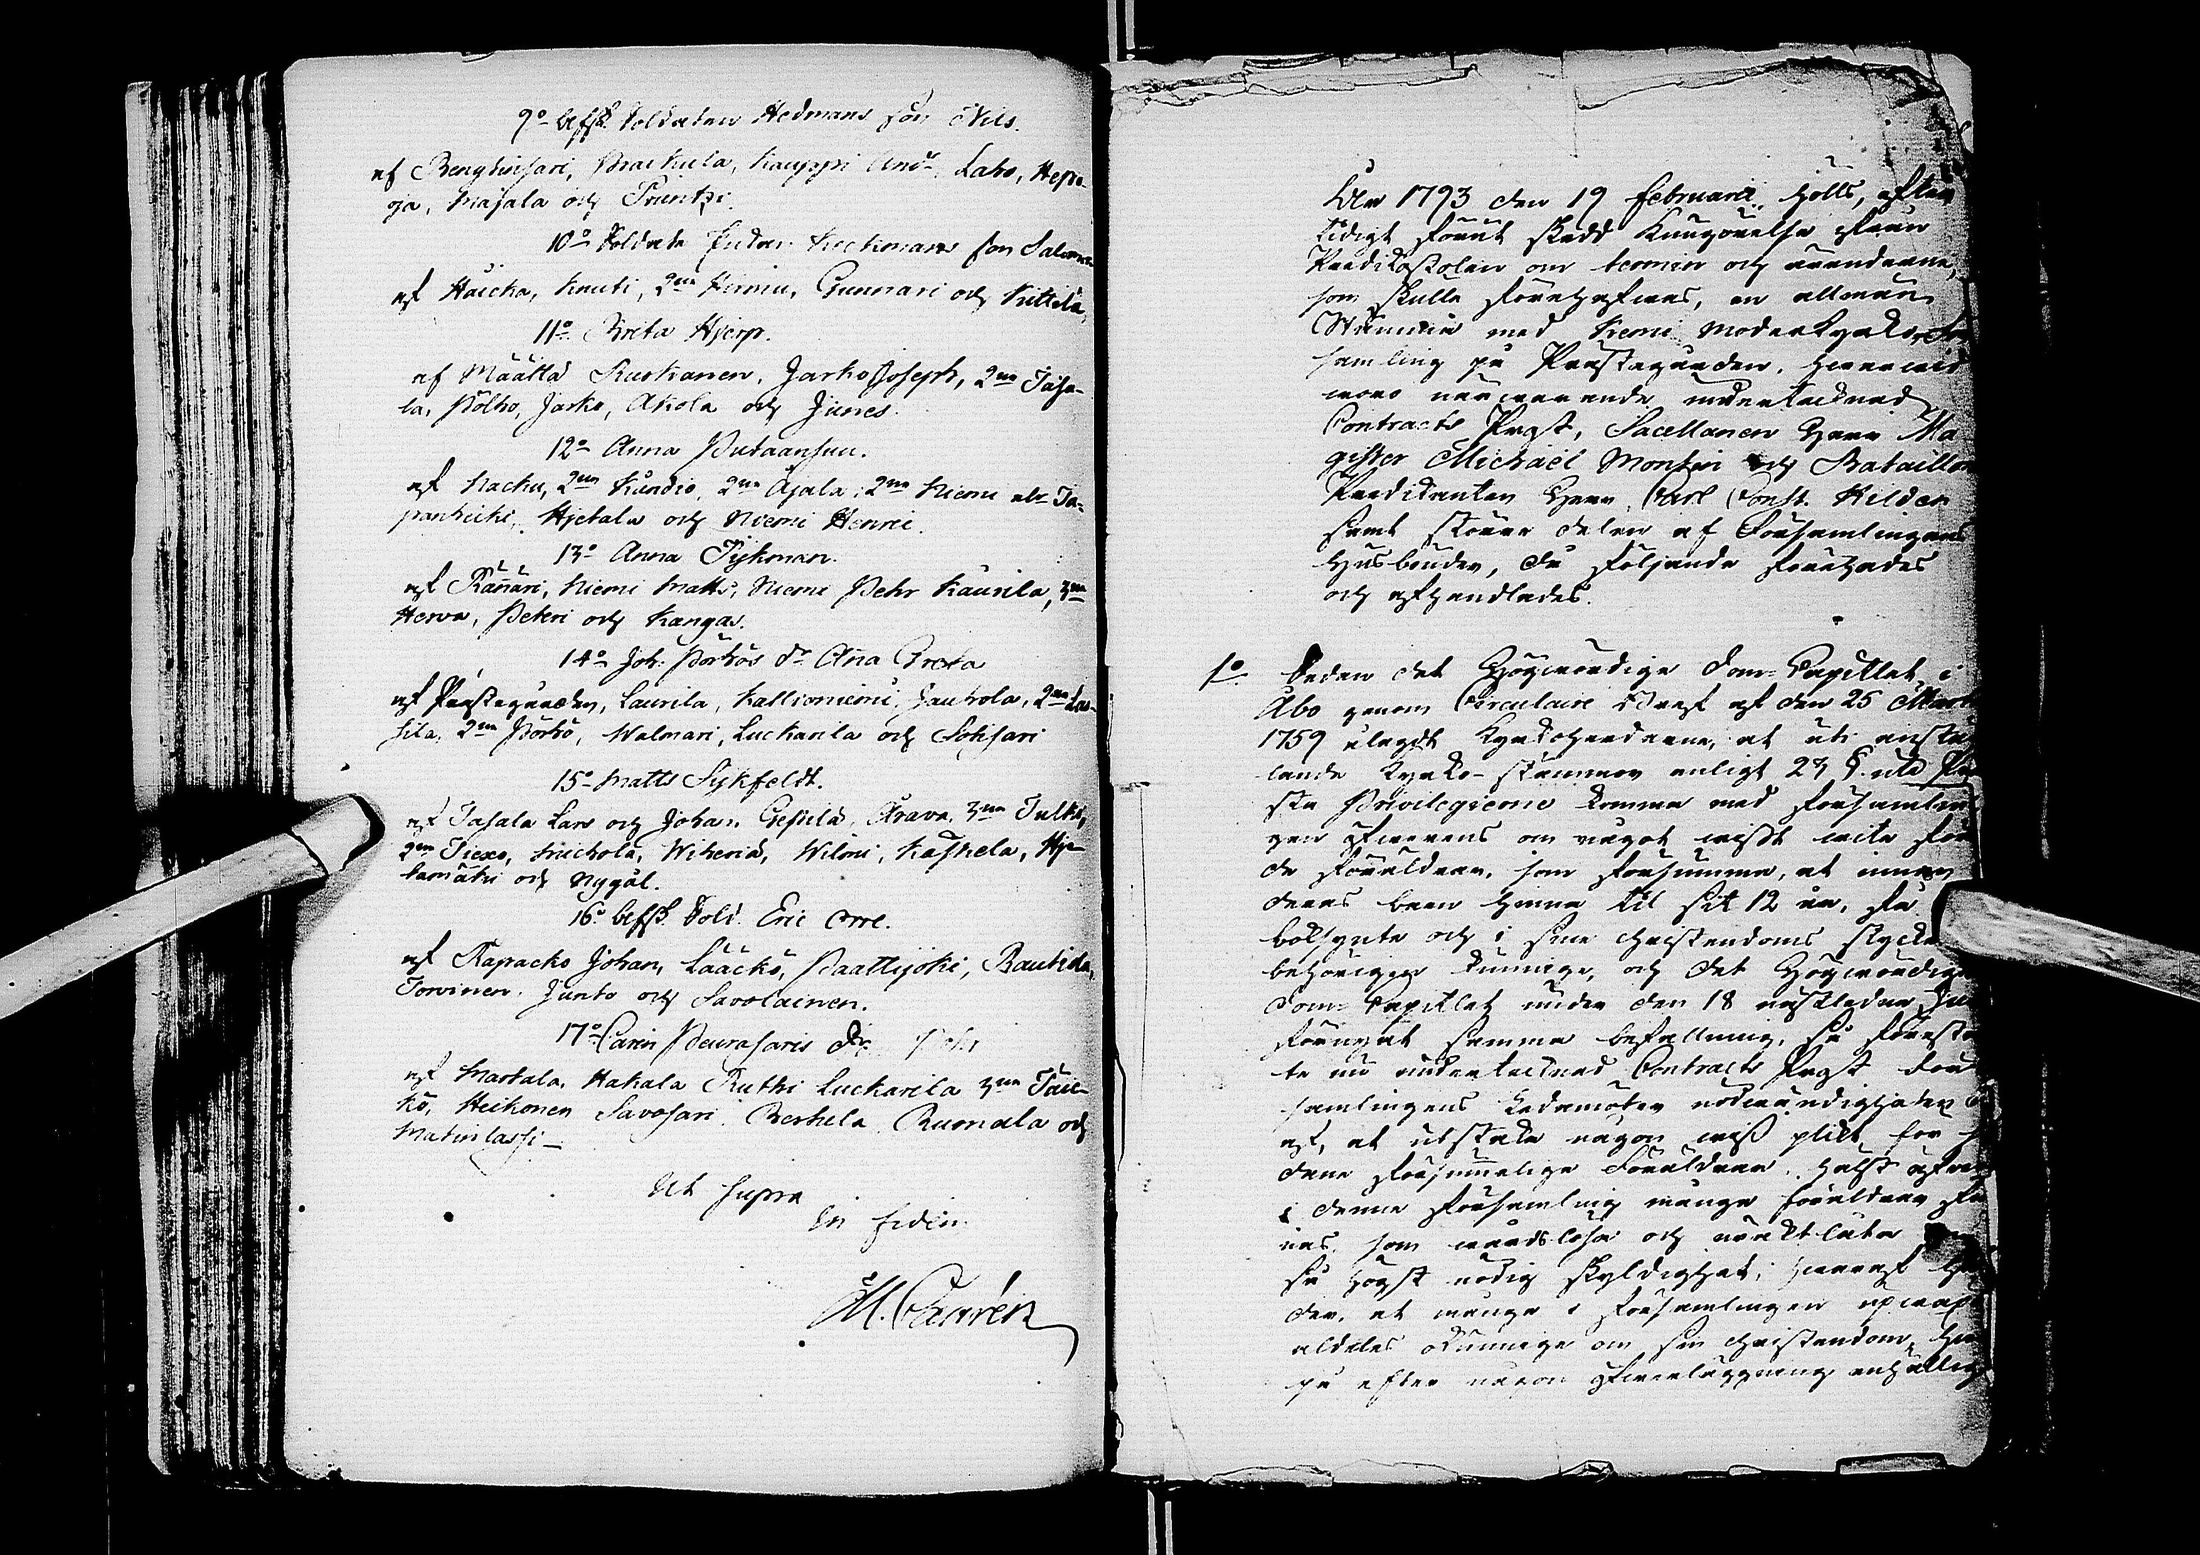 9o befsk. Soldaten Hedmans son Nils.
af Benghinsari, Braskula, Kauppi And., Laho, Hepo-
oja, Majala och Truntzi.
10o Soldate Enkan Keckmans son Salomon
af Häicka, Knuti, 2ne Pirniu, Gunnari och Kittilä,
11o Brita Hjerp.
af Määttä Kuckanen, Jarho Joseph, 2ne Taha-
la, Pölho, Jarko, Akola och Junes.
12o Anna Putaansuu.
af Nacku, 2ne Kundio, 2ne Ajala, 2ne Niemi alr Ta-
panheiki, Hjetala och Niemi Henric.
13o Anna Tykman.
af Rännäri, Niemi Matts, Niemi Pehr Kaurila, 3ne
Herva, Peteri och Kangas.
14o Joh. Pörhös dr Anna Greta
af Prästegården, Laurila, Kallioniemi, Jauhola, 2ne Las-
sila, 2ne Pörhö, Walmari, Luckarila och Sohsari
15o Matts Sykfeldt.
af Tahala Lars och Johan, Crepula, Arava, 3ne Tulki,
2ne Tiexo, Kuichola, Wikeriä, Wilmi, Kaskela, Hje-
tamäki och Nygål.
16o befsk. Sold. Eric Orre.
af Rapacko Johan, Lääckö, Paattijoki, Rautida,
Torvinen, Junto och Savolainen.
17o Carin Peurasaris dr
af Martala, Hakala Ruthi Luckarila 3ne Täic-
kö, Heikonen Savosari, Bertula, Rumala och
Matinlassi
Ut supra
In fidem.
M. Castrén
År 1793 den 19 Februarii hölls, efter
tidigt förut skedd kungörelse från
Predikostolen om termin och ärenderne,
som skulle företagas, en allmän
Stämma med Kemi moderkyrko För-
samling på Prästegården, hvarvid
woro närwarande undertecknad
Contracts Prost, Sacellanen Herr Ma-
gister Michaël Montin och Bataillons
Predikanten Herr Carl Const. Hilden
samt större delen af Församlingens
husbönder, då följande förehades
och afhandlades.
1o. Sedan det Högwördige Dom-Capitlet i
Åbo genom Circulaire bref af den 25 Martii
1759 ålagdt Kyrkoherdarne, at uti anstäl-
lande kyrko-stämmor enligt 23 §. uti Prä-
ste Privilegierne komma med församlin-
gen öfwerens om något wisst wite för
de föräldrar, som försumma, at innan
deras barn hinna til sit 12 år, få
boksynte och i sina christendoms stycken
behörigen kunnige, och det Högwördige
Dom-Capitlet under den 18 nästledne Jun
förnyat samma befallning, så förestäl-
te nu undertecknad Contracts Prost För-
samlingens ledamöter nödwändigheten der-
af, at utstaka någon wiss plikt för så-
dane försummelige föräldrar, hälst äfwen
i denne församling många föräldrar fin-
nas, som wårdslösa och uraktlåta denna
så högst nödig skyldighet, hwaraf hän-
der, at många i församlingen upwäxa
aldeles okunnige om sin christendom, här-
på efter någon öfwerläggning enhällig